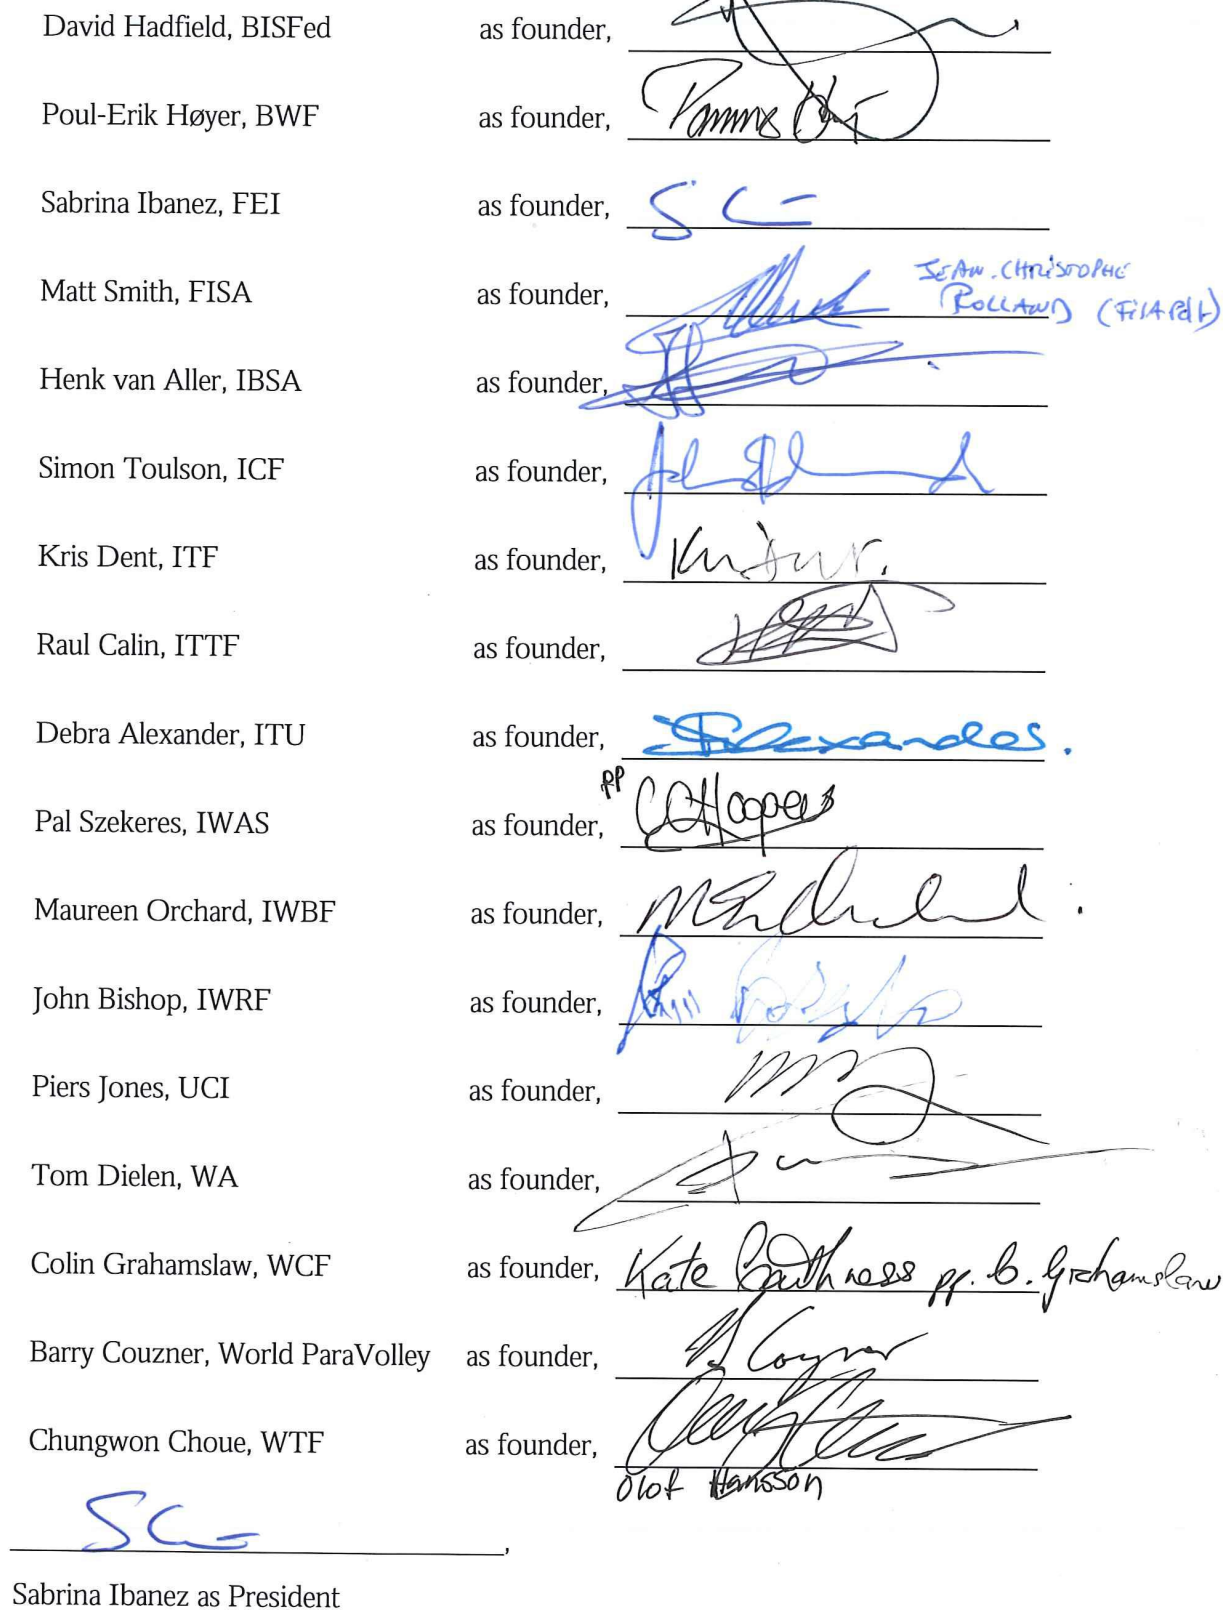 David Hadfield, BISFed as founder,
Poul-Erik Høyer, BWF as founder,
Sabrina Ibanez, FEI as founder,
Matt Smith, FISA as founder, JEAN-CHRISTOPHE
ROLLAND
Henk van Aller, IBSA as founder,
Simon Toulson, ICF as founder,
Kris Dent, ITF as founder,
Raul Calin, ITTF as founder,
Debra Alexander, ITU as founder,
Pal Szekeres, IWAS as founder, pp
Maureen Orchard, IWBF as founder,
John Bishop, IWRF as founder,
Piers Jones, UCI as founder,
Tom Dielen, WA as founder,
Colin Grahamslaw, WCF as founder, Kate Caithness pp. C. Grahamslaw
Barry Couzner, World ParaVolley as founder,
Chungwon Choue, WTF as founder,
Olof Hansson
Sabrina Ibanez as President